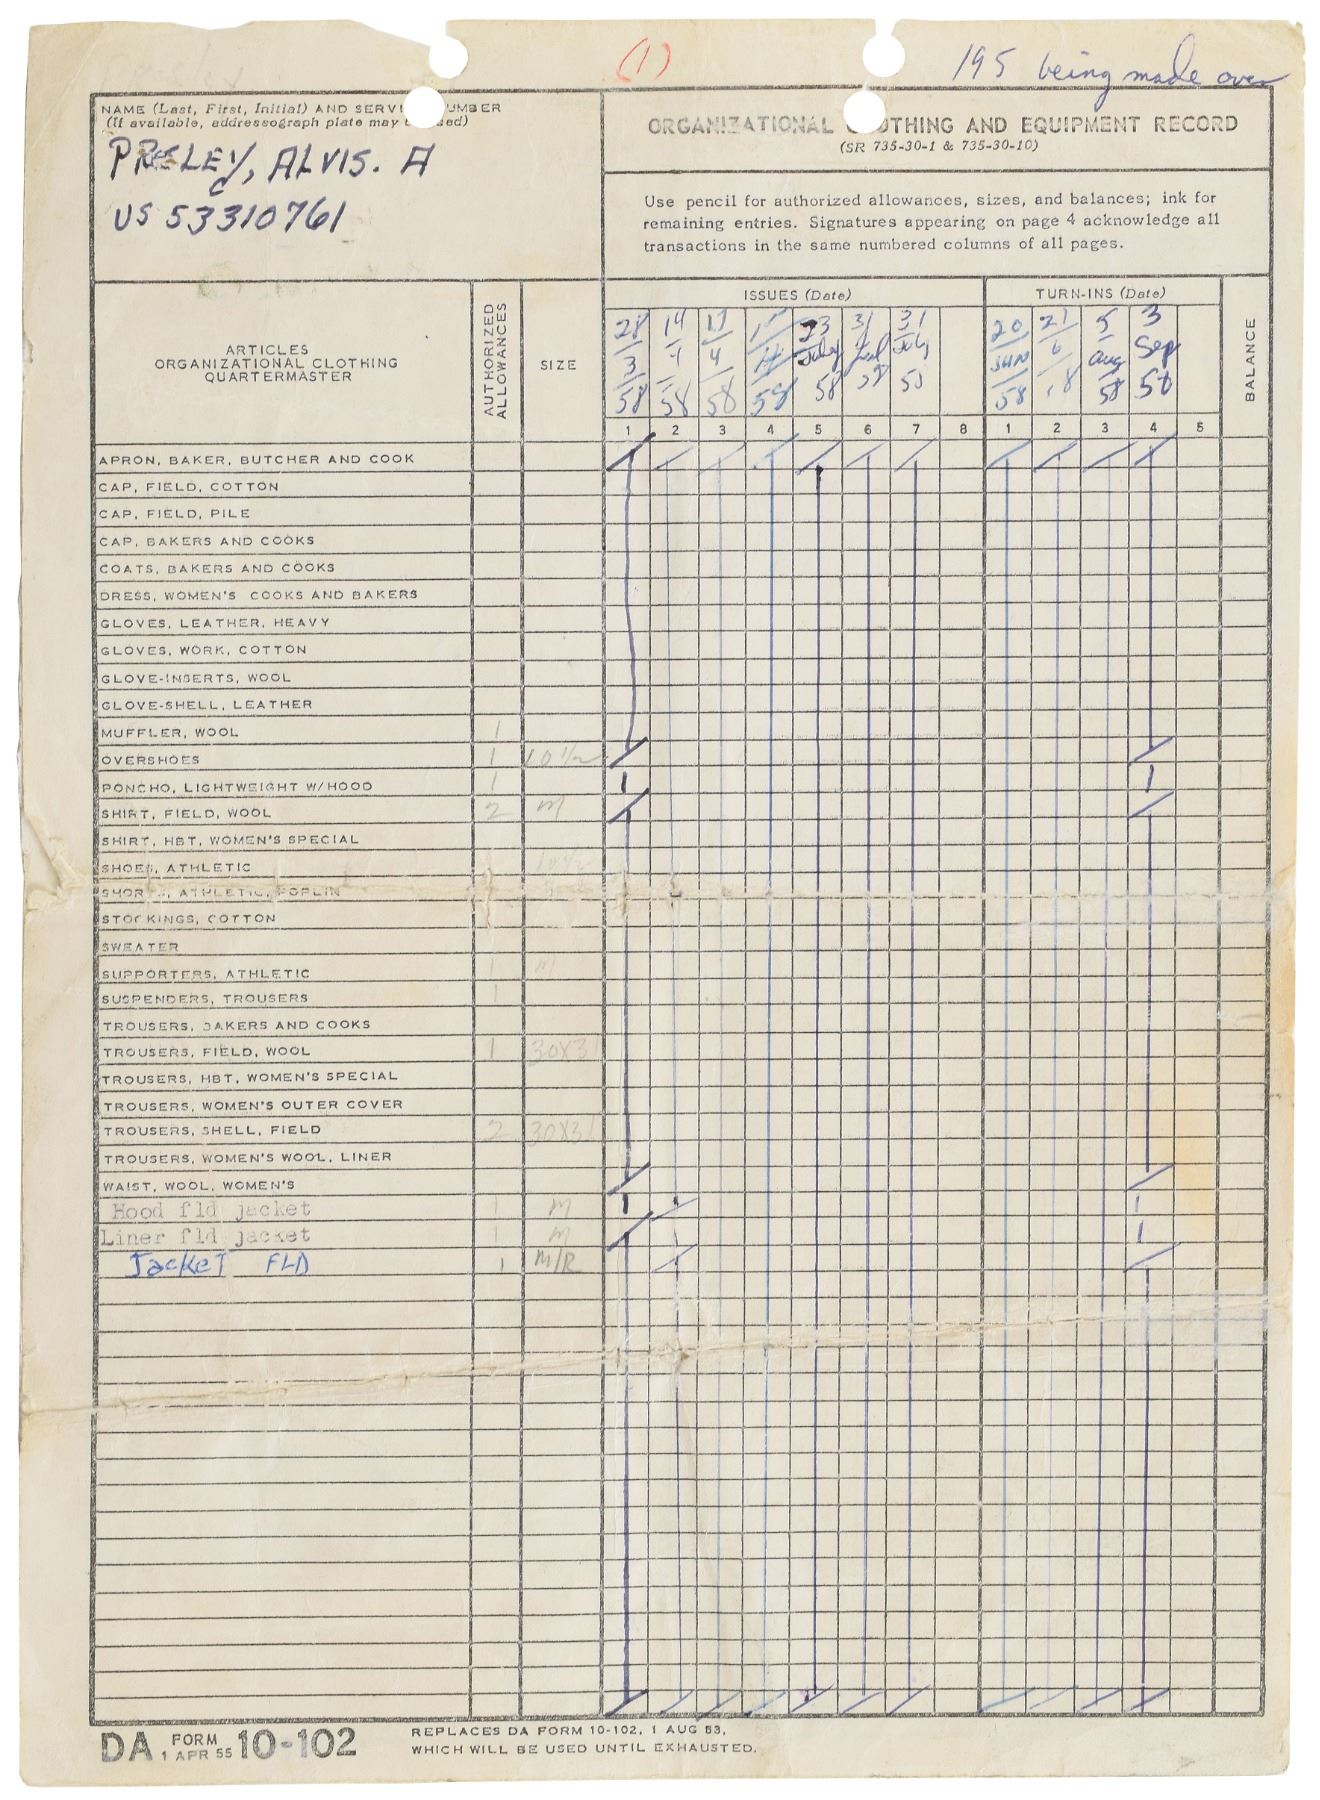 (1)
195 being made over
NAME (Last, First, Initial) AND SERVI UMBER
(If available, addressograph plate may b sed)
PRESLEY, ALVIS. A
US 53310761
ORGANIZATIONAL C OTHING AND EQUIPMENT RECORD
(SR 735-30-1 & 735-30-10)
Use pencil for authorized allowances, sizes, and balances; ink for
remaining entries. Signatures appearing on page 4 acknowledge all
transactions in the same numbered columns of all pages.
ARTICLES
ORGANIZATIONAL CLOTHING
QUARTERMASTER
AUTHORIZED
ALLOWANCES
SIZE
ISSUES (Date)
TURN-INS (Date)
BALANCE
28 14 17 23 31 31 20 27 5 3
3 4 4 July Jul July Jun 6 Aug Sep
58 58 58 58 58 58 58 58 58
1 2 3 4 5 6 7 8 1 2 3 4 5
APRON, BAKER, BUTCHER AND COOK
CAP, FIELD, COTTON
CAP, FIELD, PILE
CAP, BAKERS AND COOKS
COATS, BAKERS AND COOKS
DRESS, WOMEN'S COOKS AND BAKERS
GLOVES, LEATHER, HEAVY
GLOVES, WORK, COTTON
GLOVE-INSERTS, WOOL
GLOVE-SHELL, LEATHER
MUFFLER, WOOL 1
OVERSHOES 1 10 1/2
PONCHO, LIGHTWEIGHT W/HOOD 1 1 1
SHIRT, FIELD, WOOL 2 M
SHIRT, HBT, WOMEN'S SPECIAL
SHOES, ATHLETIC 10 1/2
SHORTS, ATHLETIC, POPLIN
STOCKINGS, COTTON
SWEATER
SUPPORTERS, ATHLETIC 1 M
SUSPENDERS, TROUSERS 1
TROUSERS, BAKERS AND COOKS
TROUSERS, FIELD, WOOL 1 30X31
TROUSERS, HBT, WOMEN'S SPECIAL
TROUSERS, WOMEN'S OUTER COVER
TROUSERS, SHELL, FIELD 2 30X31
TROUSERS, WOMEN'S WOOL, LINER
WAIST, WOOL, WOMEN'S
Hood fld jacket 1 M 1 1
Liner fld jacket 1 M 1
Jacket FLD 1 M/R
DA FORM 10-102
1 APR 55
REPLACES DA FORM 10-102, 1 AUG 53,
WHICH WILL BE USED UNTIL EXHAUSTED.